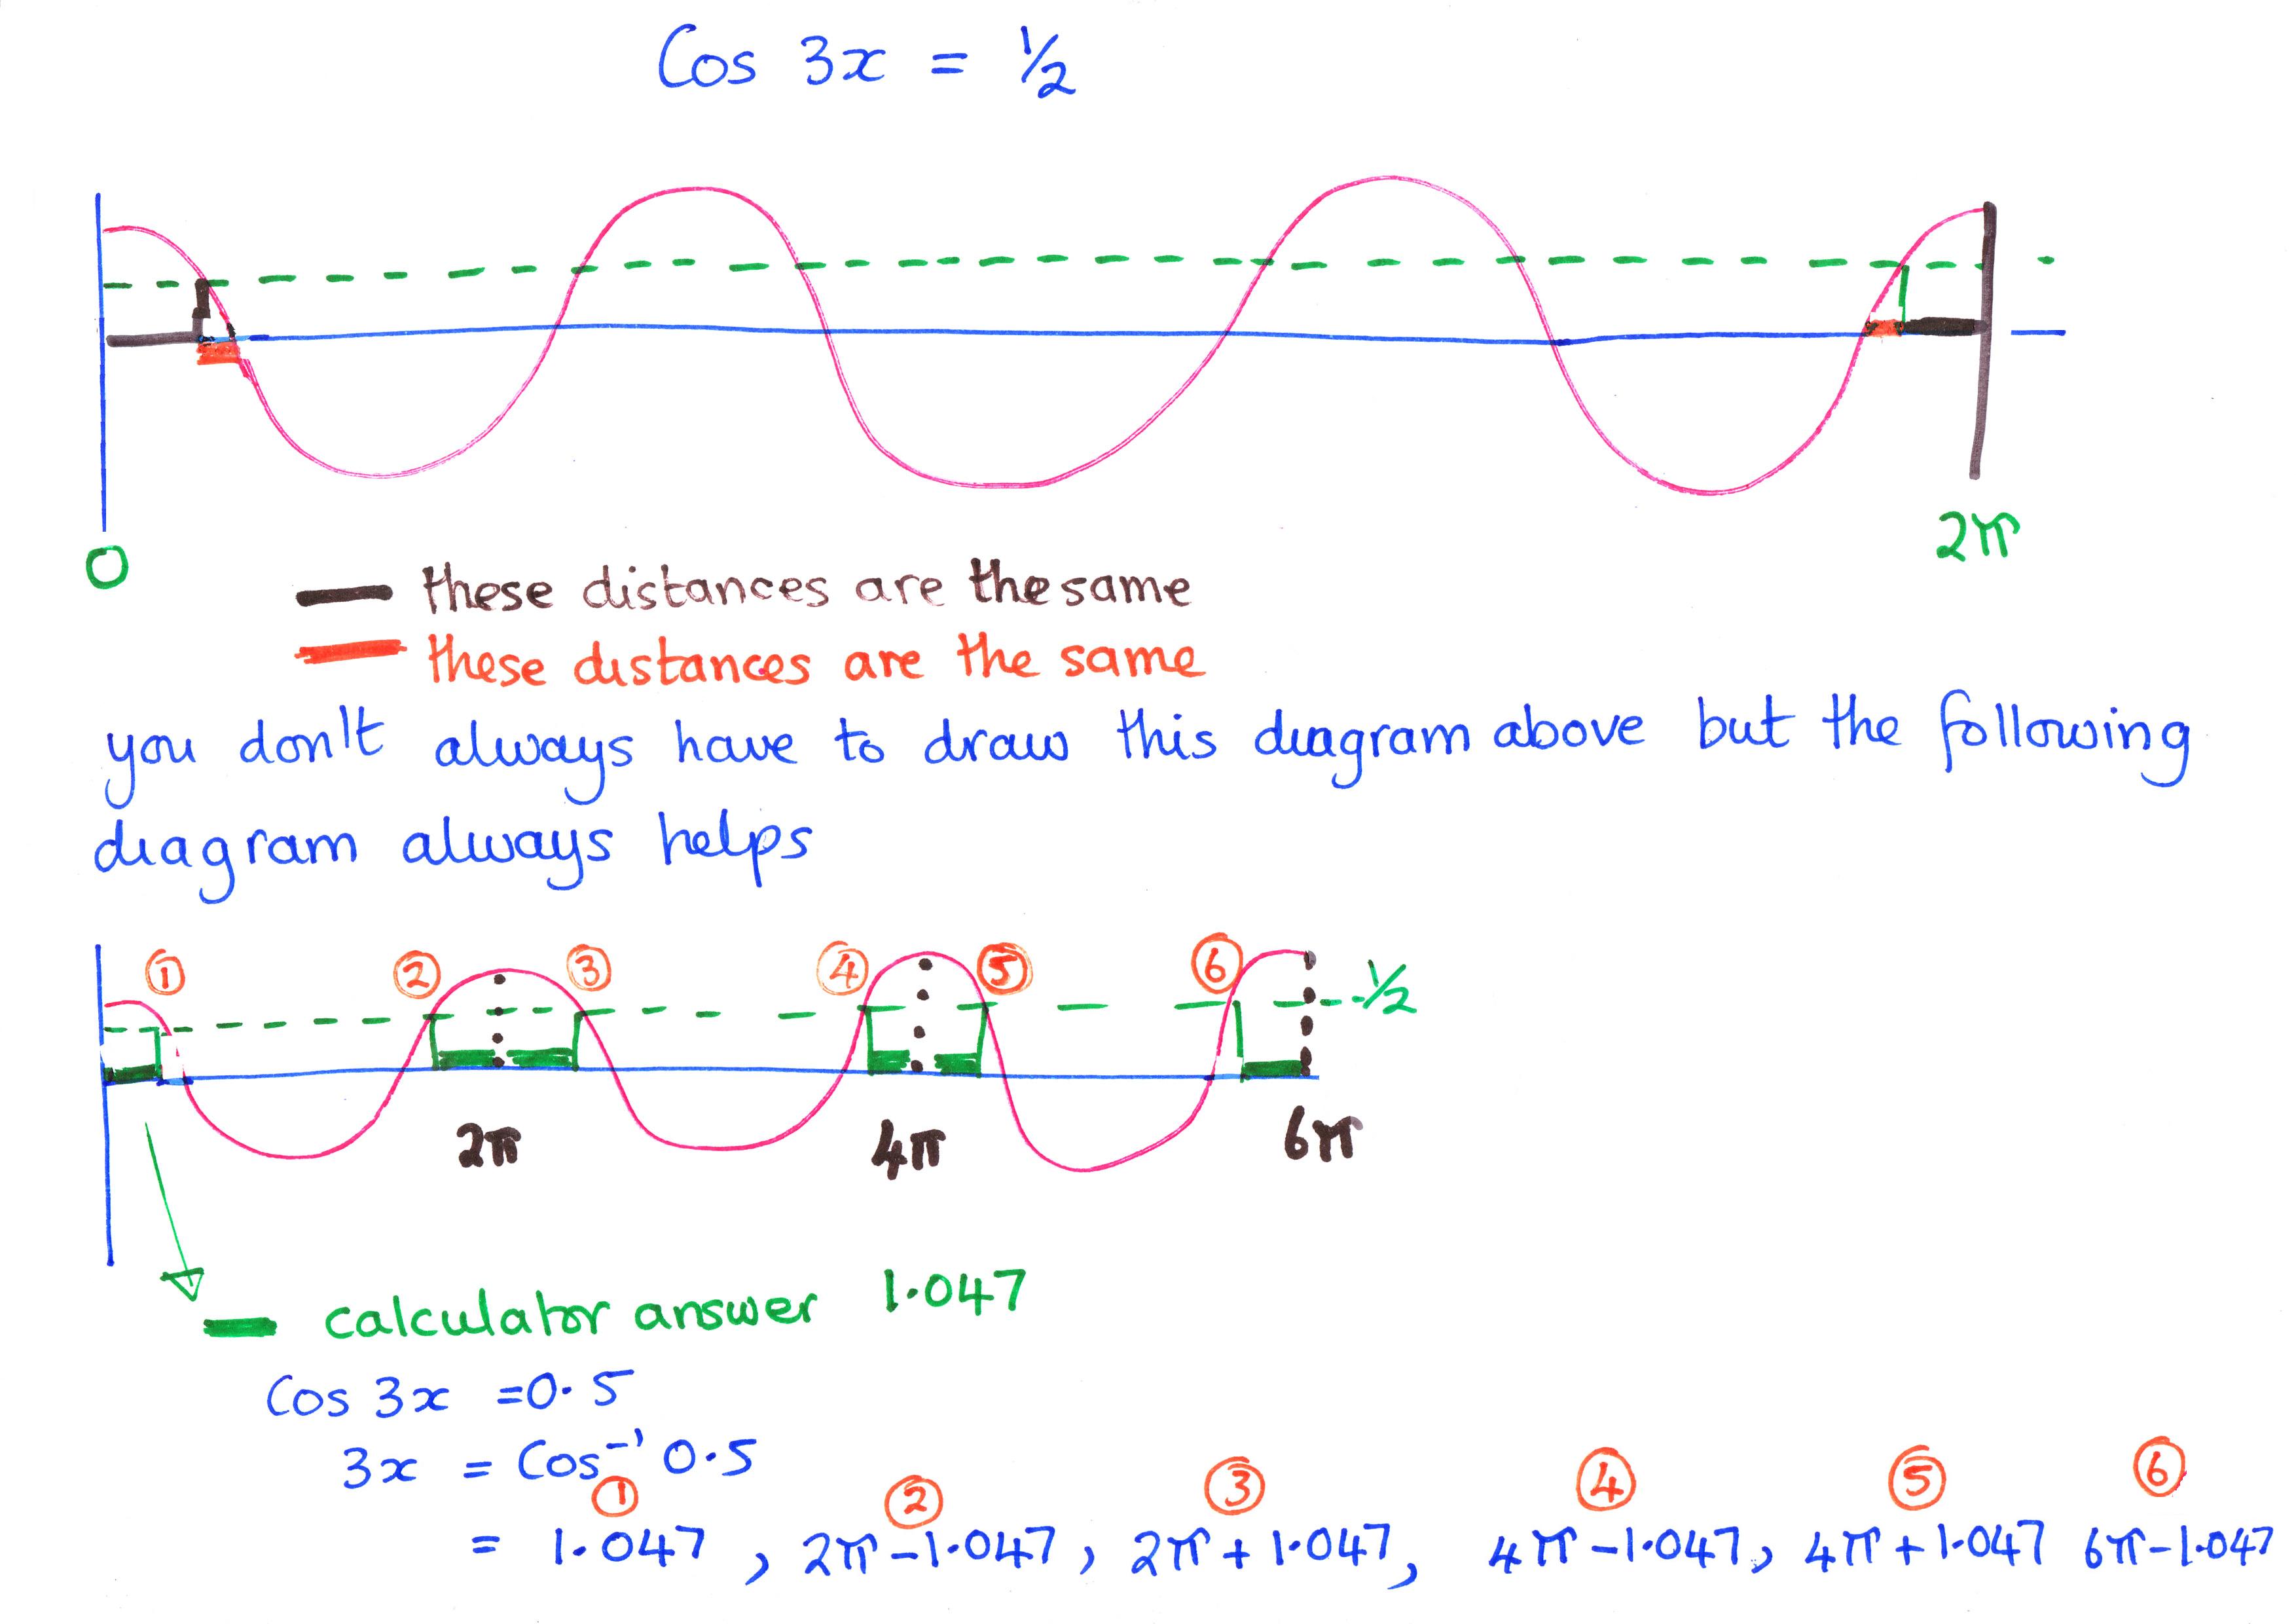 Cos 3x = 1/2
0
2π
these distances are the same
these distances are the same
you don't always have to draw this diagram above but the following
diagram always helps
① ② ③ ④ ⑤ ⑥
1/2
2π 4π 6π
calculator answer 1.047
Cos 3x = 0.5
3x = Cos⁻¹ 0.5
① ② ③ ④ ⑤ ⑥
= 1.047 , 2π-1.047, 2π+1.047, 4π-1.047, 4π+1.047 6π-1.047